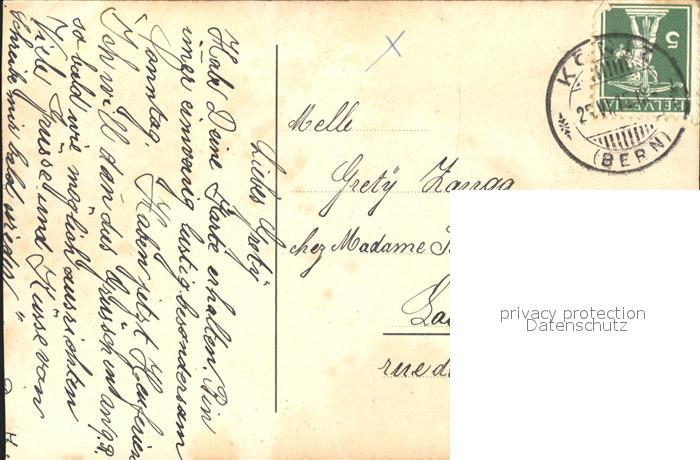 Liebes Grety
Habe Deine Karte erhalten. Bin
imer einwenig lustig besonders am
Sonntag. Haben jetzt Heuferien
Ich will dan das Grüssen an
so bald wie möglich ausrichten
Viele Grüsse und Küsse von
Schreibe mir bald wieder
Melle
Grety Zangg
chez Madame
rue d
5
HELVETIA
(BERN)
privacy protection
Datenschutz